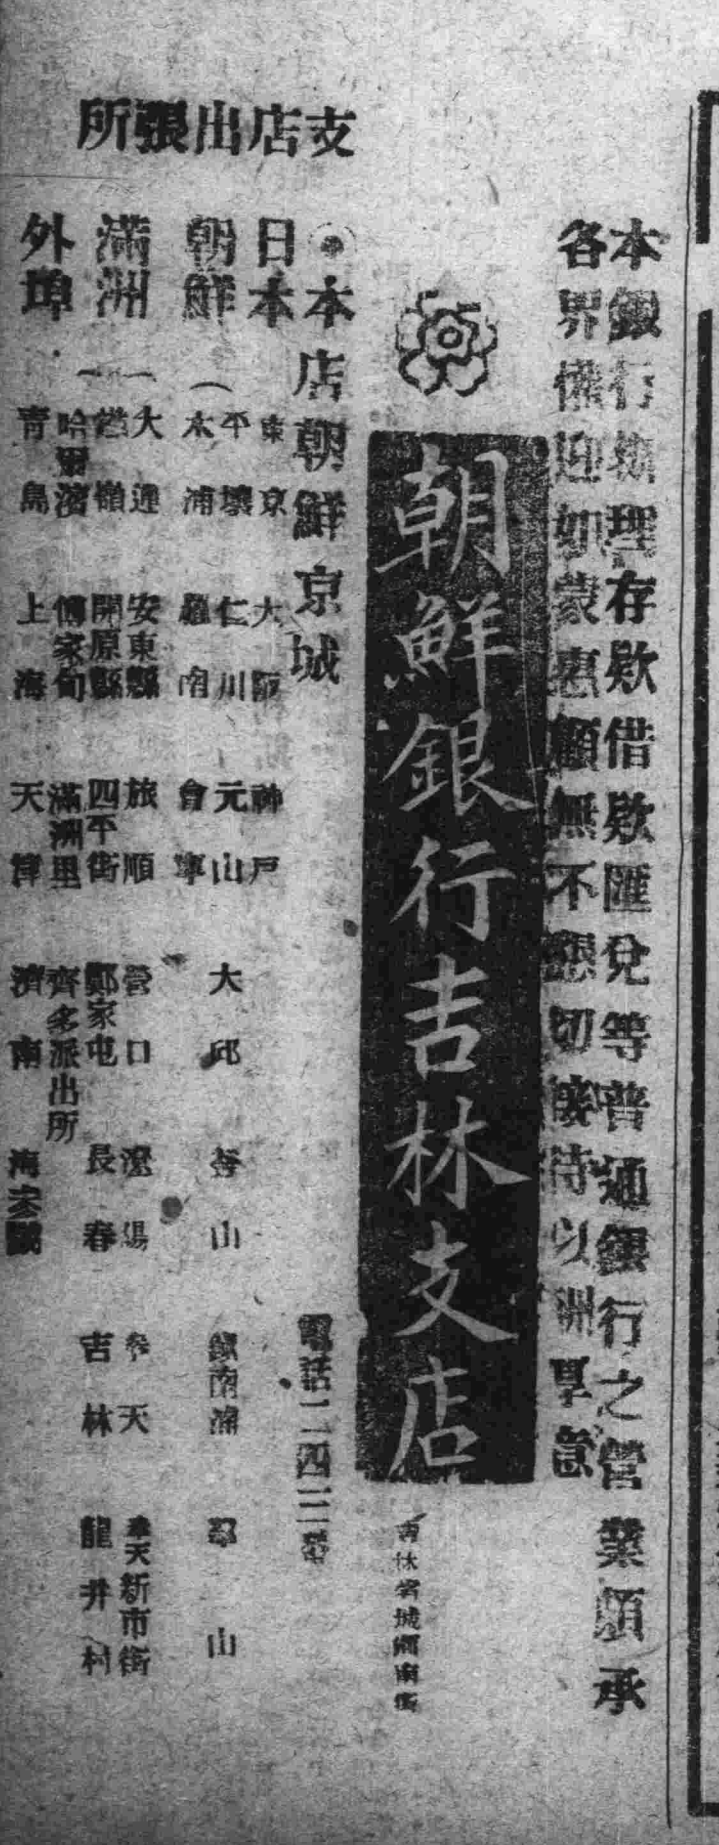 本銀行辦理存欵借欵匯兌等普通銀行之營業頗承
各界懽迎如蒙惠顧無不懇切接待以洲厚意
朝鮮銀行吉林支店
吉林省城西南街
◉本店朝鮮京城
電話二四三番
支店出張所
日本
東京 大阪 神戶
朝鮮
平壤 仁川 元山 大邱 釜山 鎮南浦 群山
木浦 羅南 會寧
滿洲
大連 安東縣 旅順 營口 遼陽 奉天 奉天新市街
鐵嶺 開原縣 四平街 鄭家屯 長春 吉林 龍井村
哈爾濱 傅家甸 滿洲里 齊多派出所
外埠
青島 上海 天津 濟南 海參